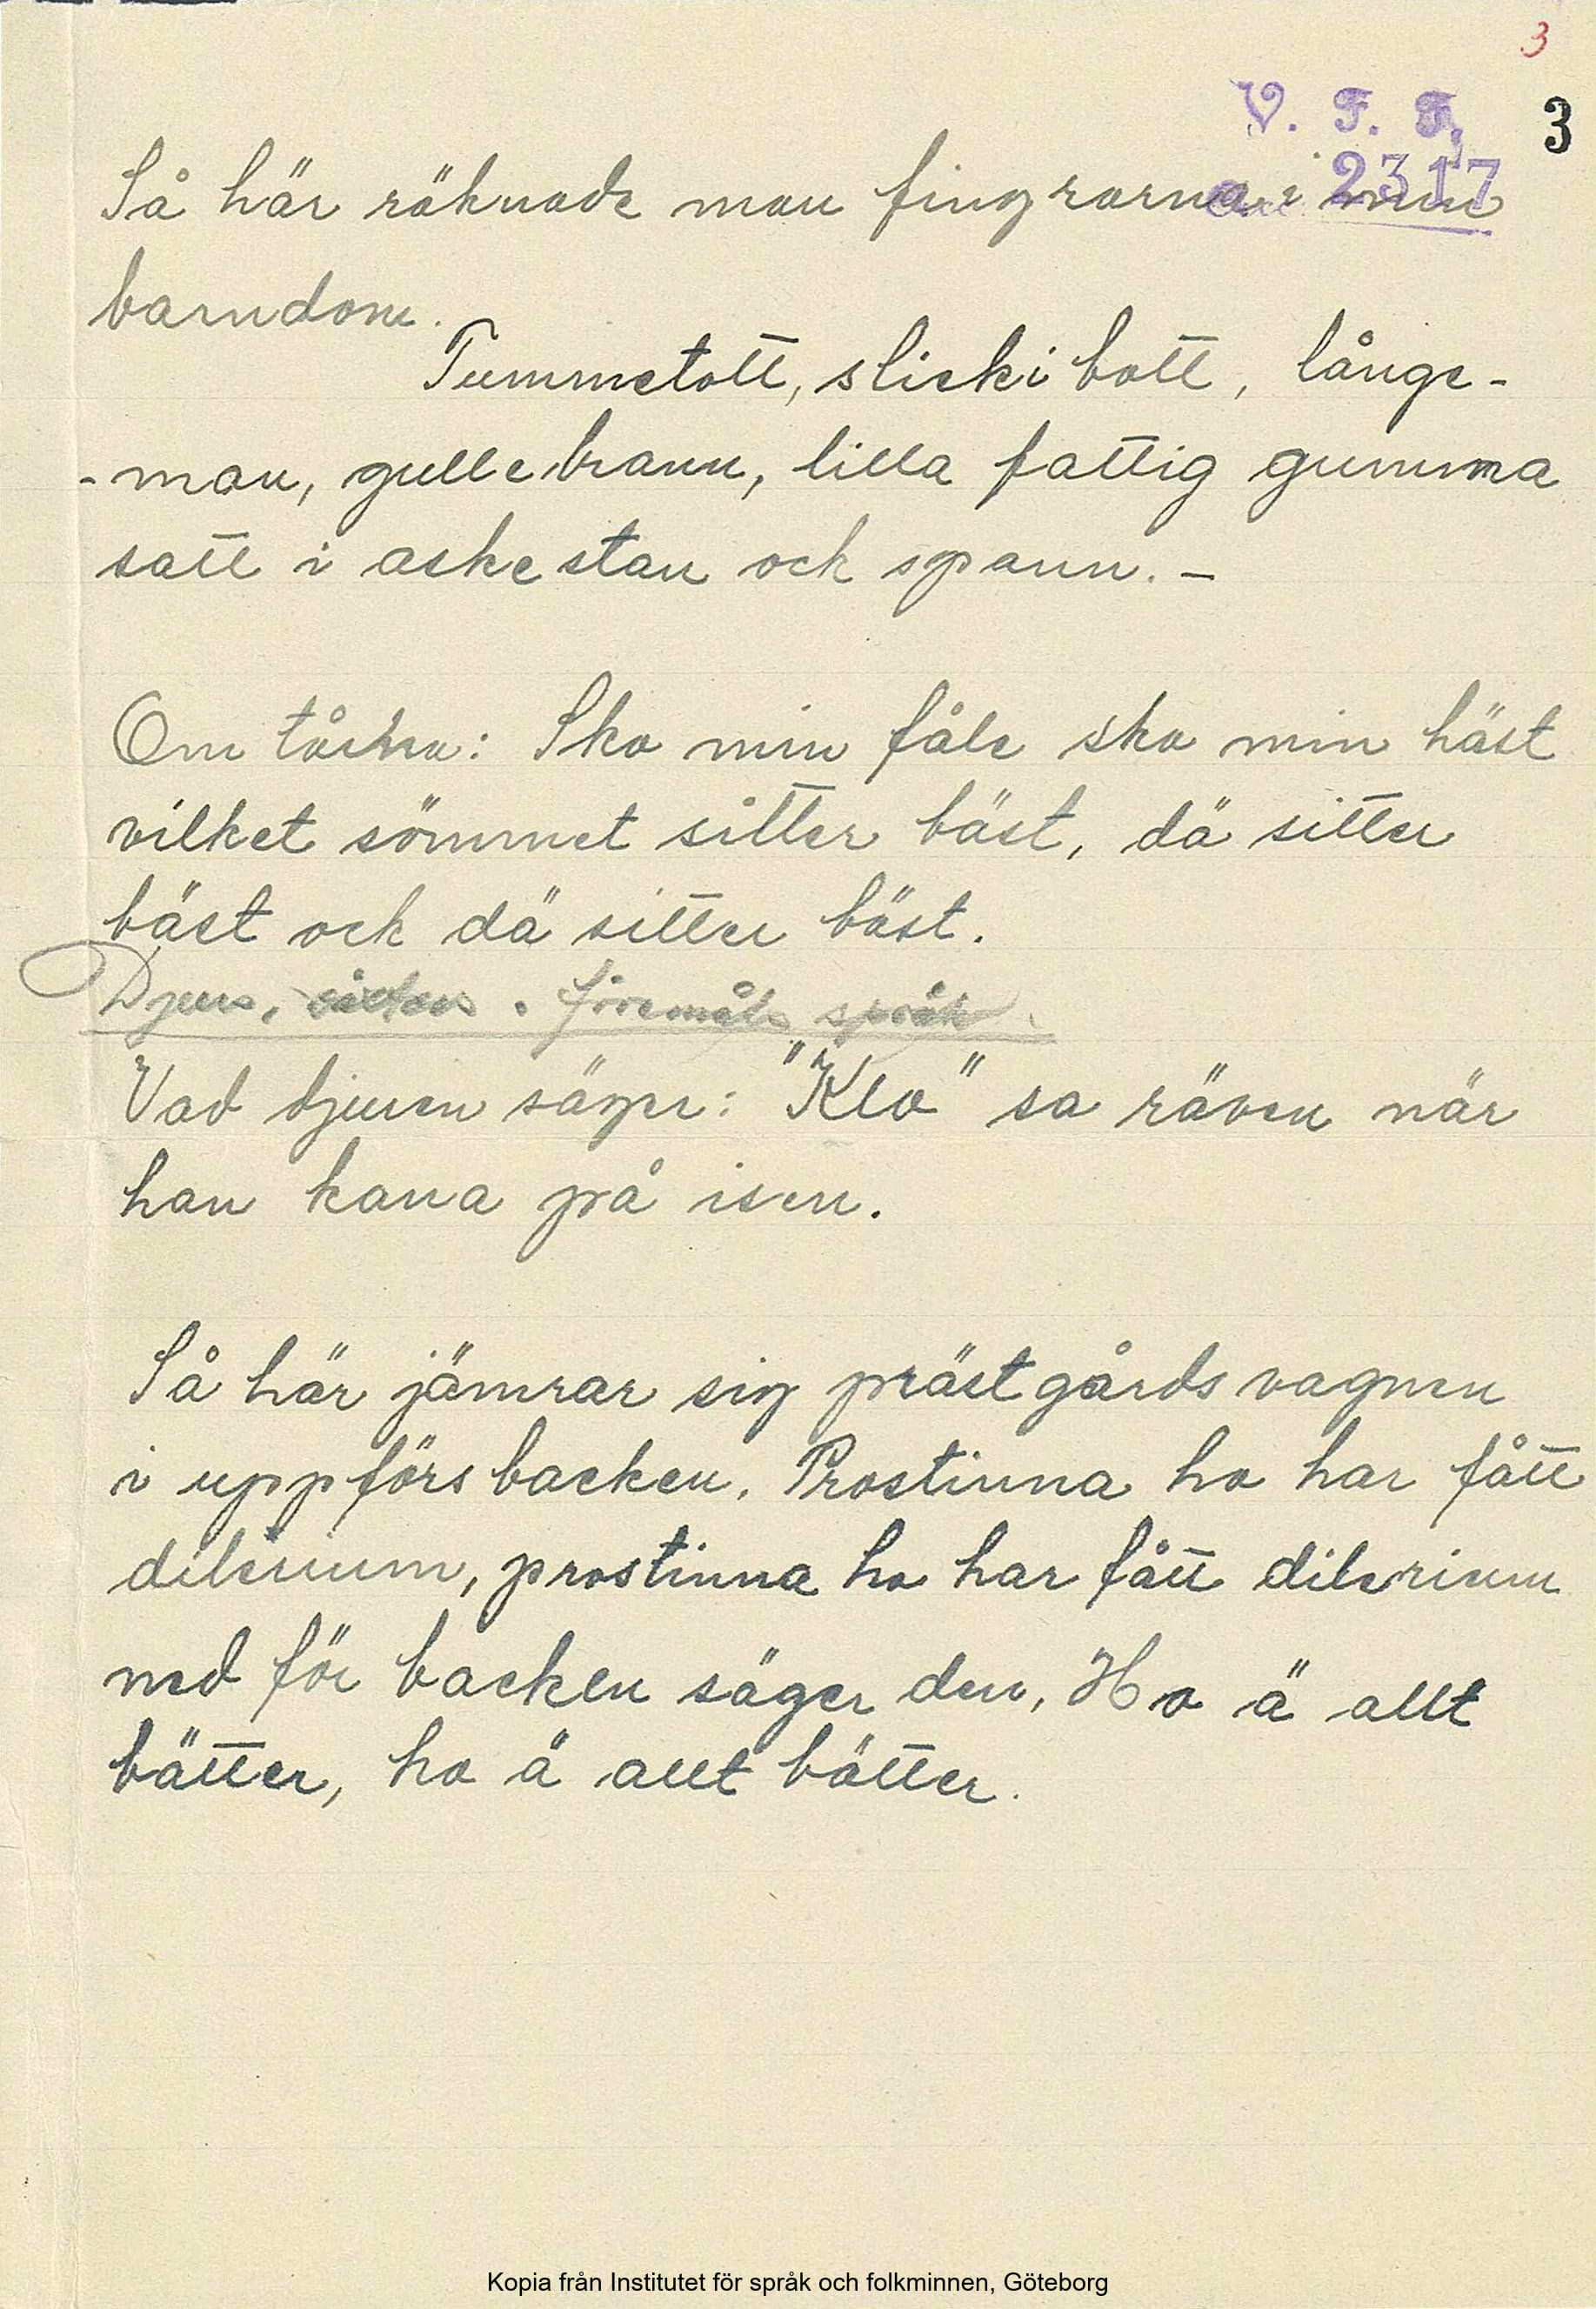 3
V. F. F. 3
2317
Så här räknade man fingrarna i min
barndom.
Tummetott, slickibott, långe-
-man, gullebrann, lilla fattig gumma
satt i askestan ock spann. –
Om tåerna: Sko min fåle sko min häst
vilket sömmet sitter bäst, dä sitter
bäst ock dä sitter bäst.
Djurs, föremåls språk.
Vad djuren säger: "Klo" sa räven när
han kana på isen.
Så här jämrar sig prästgårdsvagnen
i uppförsbacken. Prostinna ho har fått
dilerium, prostinna ho har fått dilerium
ned för backen säger den, Ho ä allt
bätter, ho ä allt bätter.
Kopia från Institutet för språk och folkminnen, Göteborg